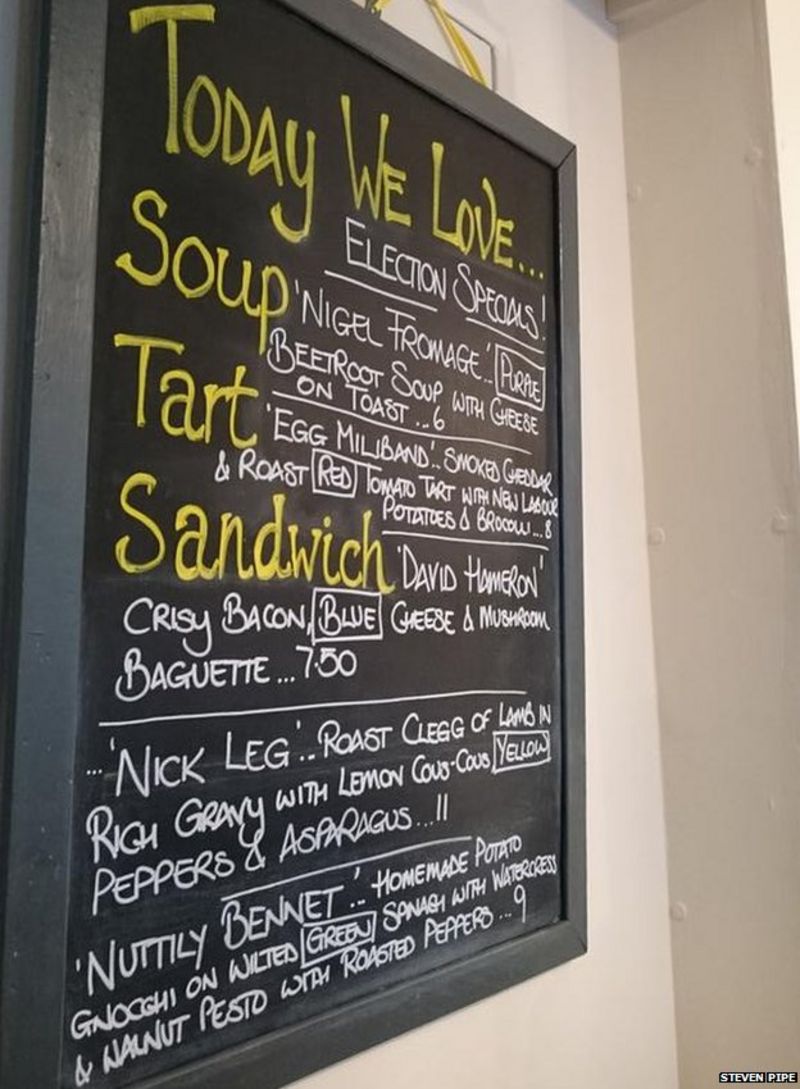 TODAY WE LOVE...
ELECTION SPECIALS!
Soup 'NIGEL FROMAGE'... PURPLE
BEETROOT SOUP WITH CHEESE
ON TOAST ...6
Tart 'EGG MILIBAND'.. SMOKED CHEDDAR
& ROAST RED TOMATO TART WITH NEW LABOUR
POTATOES & BROCOLLI ...8
Sandwich 'DAVID HAMERON'
CRISY BACON, BLUE CHEESE & MUSHROOM
BAGUETTE ...7.50
...'NICK LEG'.. ROAST CLEGG OF LAMB IN
RICH GRAVY WITH LEMON COUS-COUS YELLOW
PEPPERS & ASPARAGUS ...11
'NUTTILY BENNET'.. HOMEMADE POTATO
GNOCCHI ON WILTED GREEN SPINACH WITH WATERCRESS
& WALNUT PESTO WITH ROASTED PEPPERS ...9
STEVEN PIPE